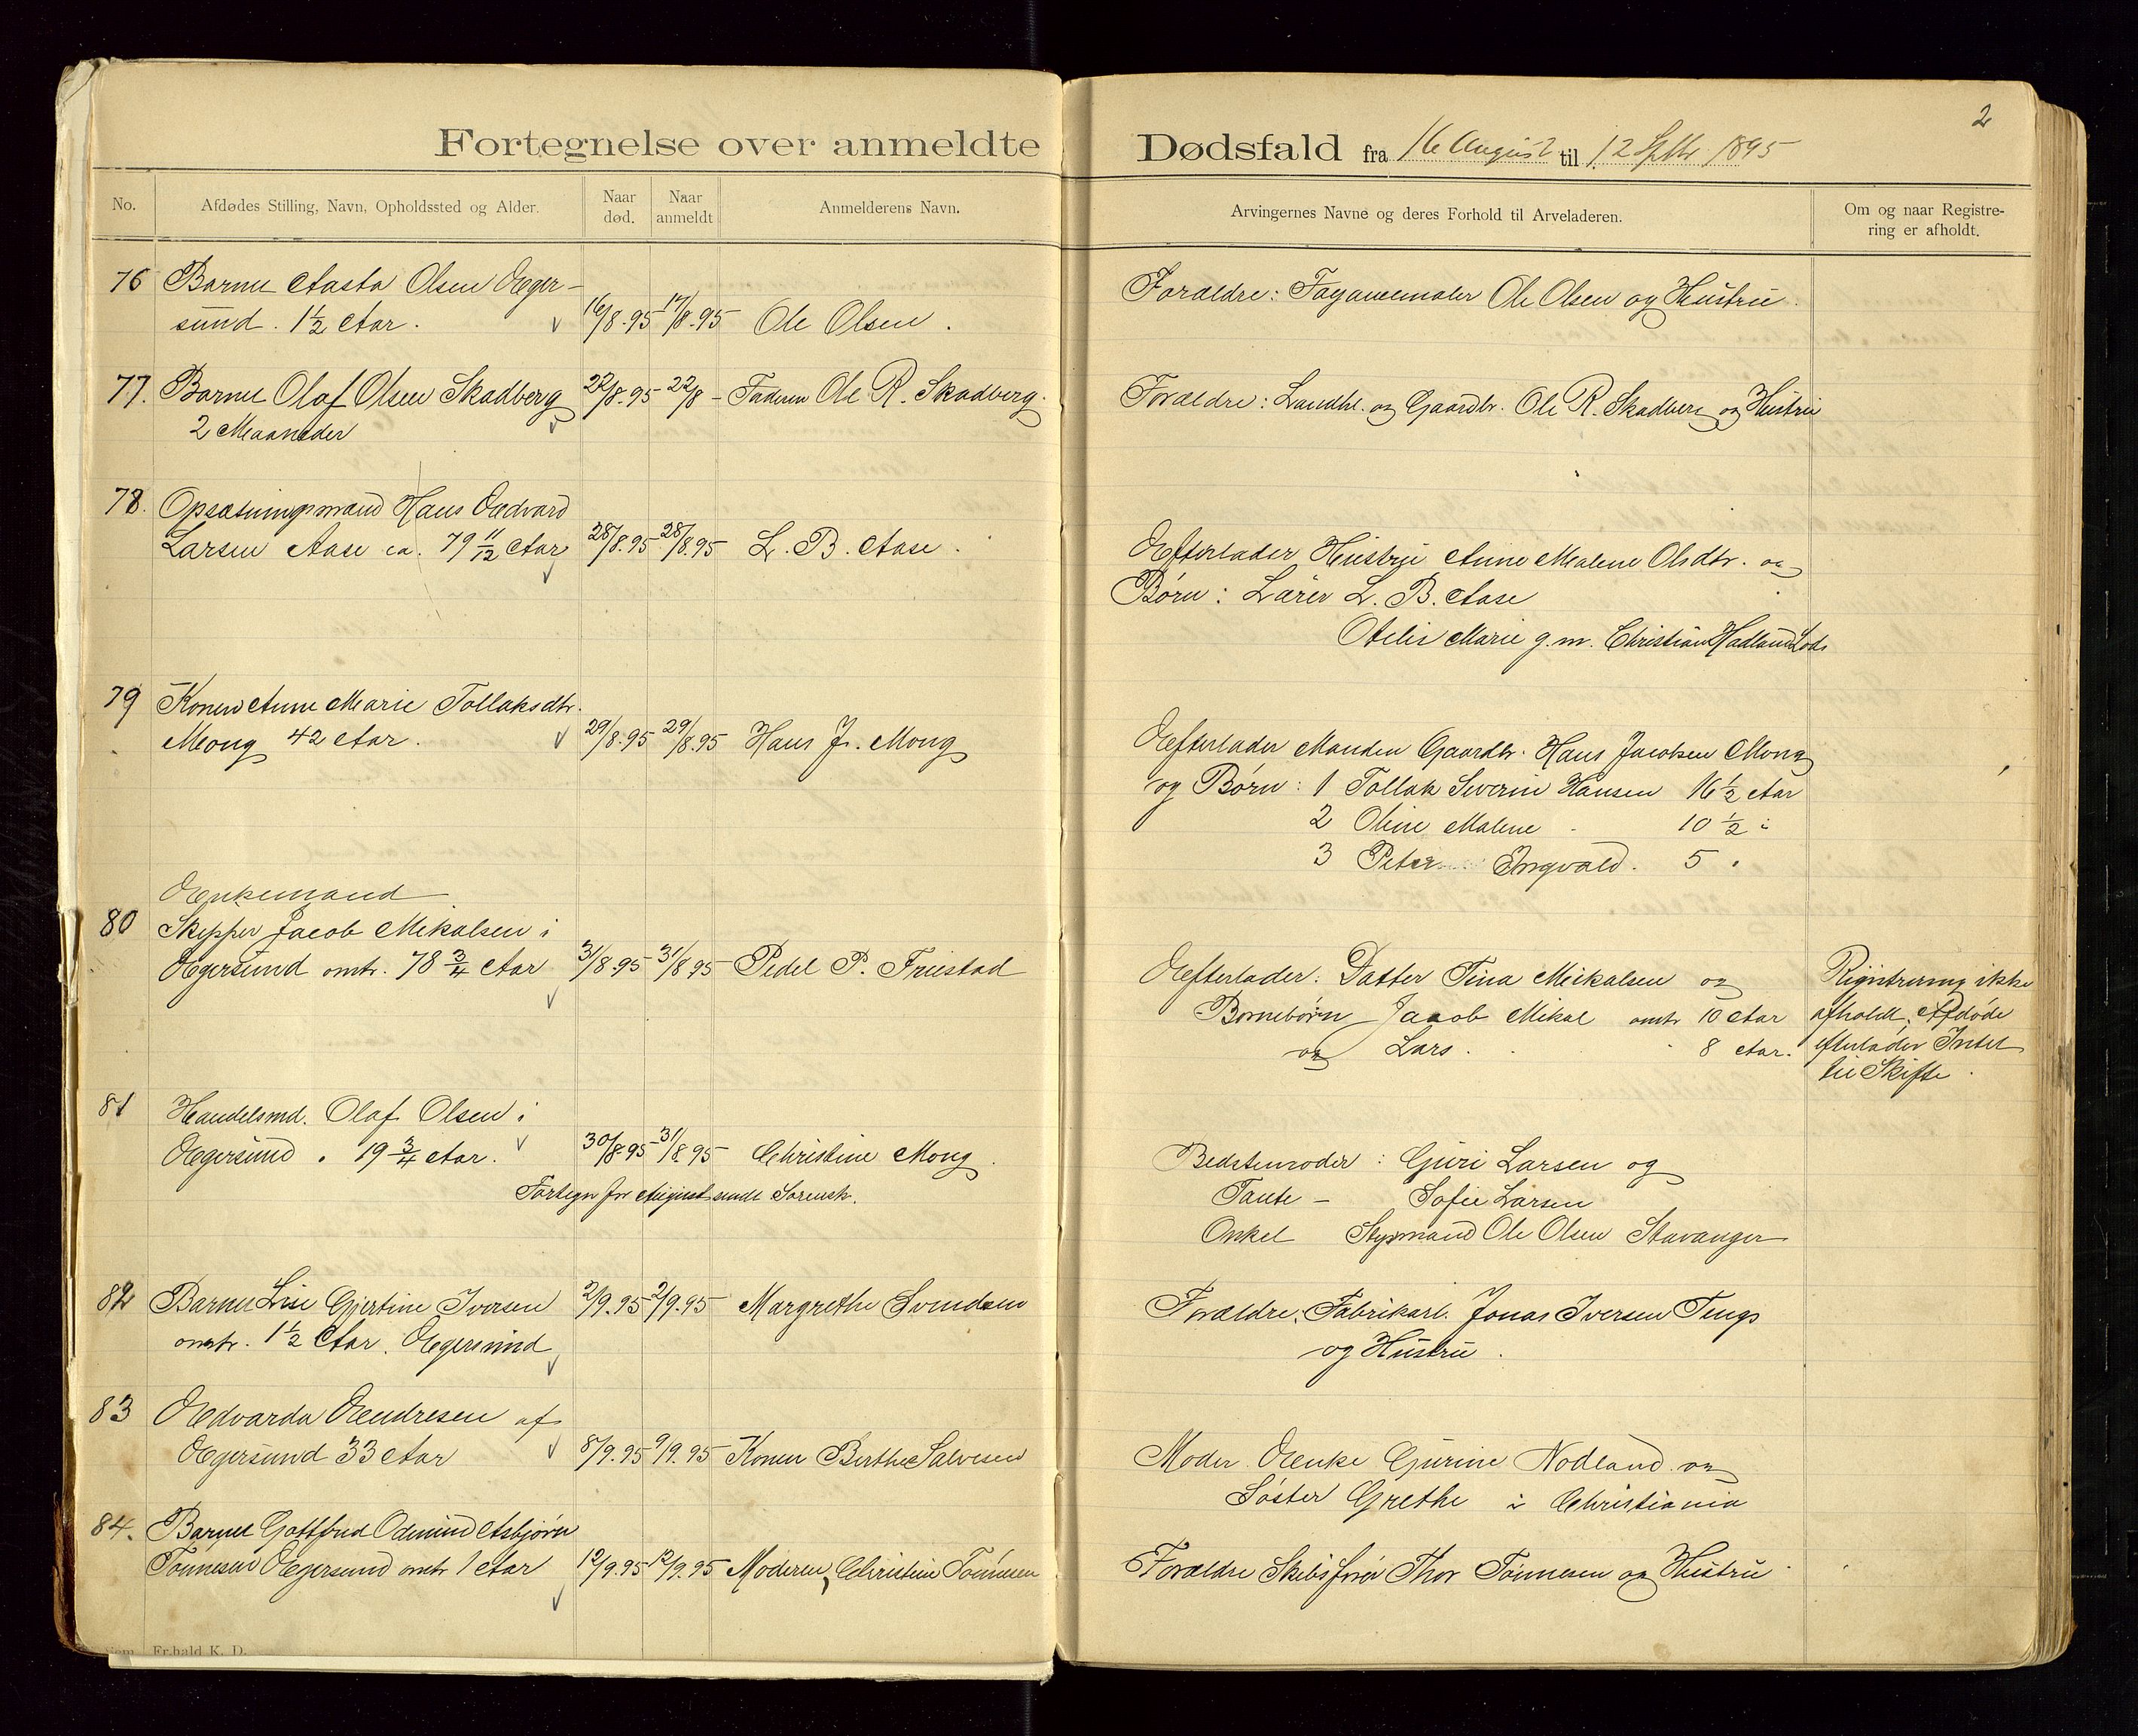 2
Fortegnelse over anmeldte Dødsfald fra 16 August til 12 Septbr 1895
No. Afdødes Stilling, Navn, Opholdssted og Alder. Naar død. Naar anmeldt Anmelderens Navn. Arvingernes Navne og deres Forhold til Arveladeren. Om og naar Registrering er afholdt.
76 Barnet Aasta Olsen Eger-
sund. 1½ Aar. 16/8.95 17/8.95 Ole Olsen.
Forældre: Fayancemaler Ole Olsen og Hustru.
77. Barnet Olaf Olsen Skadberg 22/8.95 22/8 - Faderen Ole R. Skadberg.
2 Maaneder
Forældre: Landhl. og Gaardbr. Ole R. Skadberg og Hustru
78. Opsætningsmand Hans Edvard
Larsen Aase ca. 79 11/12 Aar 28/8.95 28/8.95 L. B. Aase.
Efterlader Hustru Anne Malene Olsdtr. og
Børn: Lærer L. B. Aase
Marie g.m. Christian Hadland Lods
79 Konen Anne Marie Tollaksdtr.
Mong 42 Aar. 29/8.95 29/8.95 Hans J. Mong
Efterlader Manden Gaardbr. Hans Jacobsen Mong
og Børn: 1 Tollak Severin Hansen 16½ Aar
2 Oline Malene - 10½ "
3 Peter Engvald. 5 "
Enkemand
80 Skipper Jacob Mikalsen i
Egersund omtr. 78¾ Aar 31/8.95 31/8.95 Pedel P. Friestad
Efterlader: Datter Tina Mikalsen og
Børnebørn Jacob Mikal omtr 10 Aar
og Lars. 8 Aar.
Registrering ikke
afholdt, Afdøde
efterlader Intet
til Skifte.
81 Handelsmd. Olaf Olsen i
Egersund. 19¾ Aar. 30/8.95 31/8.95 Christine Mong.
Fortegn for August sendt Sorensk.
Bedstemoder: Guri Larsen og
Tante - Sofie Larsen
Onkel Styrmand Ole Olsen Stavanger
82 Barnet Lise Gjertine Iversen 2/9.95 2/9.95 Margrethe Svendsen
omtr. 1½ Aar. Egersund
Forældre: Fabrikarb. Jonas Iversen Tengs
og Hustru.
83 Edvarda Endresen af
Egersund 33 Aar 8/9.95 9/9.95 Konen Berthe Salvesen
Moder Enke Gurine Nodland og
Søster Grethe i Christiania
84. Barnet Gottfred Odmund Asbjørn
Tønnesen Egersund omtr 1 Aar 12/9.95 12/9.95 Moderen, Christine Tønnesen
Forældre Skibsfører Thor Tønnesen og Hustru.